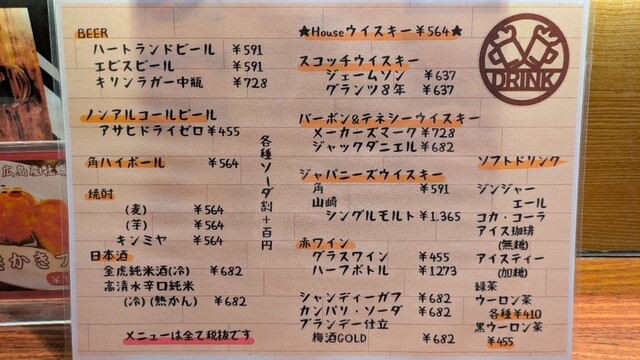 BEER
ハートランドビール ¥591
エビスビール ¥591
キリンラガー中瓶 ¥728
ノンアルコールビール
アサヒドライゼロ ¥455
角ハイボール ¥564
焼酎
(麦) ¥564
(芋) ¥564
キンミヤ ¥564
日本酒
金虎純米酒(冷) ¥682
高清水辛口純米
(冷)(熱かん) ¥682
メニューは全て税抜です
各種ソーダ割+百円
★Houseウイスキー ¥564★
スコッチウイスキー
ジェームソン ¥637
グランツ8年 ¥637
バーボン&テネシーウイスキー
メーカーズマーク ¥728
ジャックダニエル ¥682
ジャパニーズウイスキー
角 ¥591
山崎
シングルモルト ¥1,365
赤ワイン
グラスワイン ¥455
ハーフボトル ¥1273
シャンディーガフ ¥682
カンパリ・ソーダ ¥682
ブランデー仕立
梅酒GOLD ¥682
DRINK
ソフトドリンク
ジンジャー
エール
コカ・コーラ
アイス珈琲
(無糖)
アイスティー
(加糖)
緑茶
ウーロン茶
各種¥410
黒ウーロン茶
¥455
広島産牡蠣